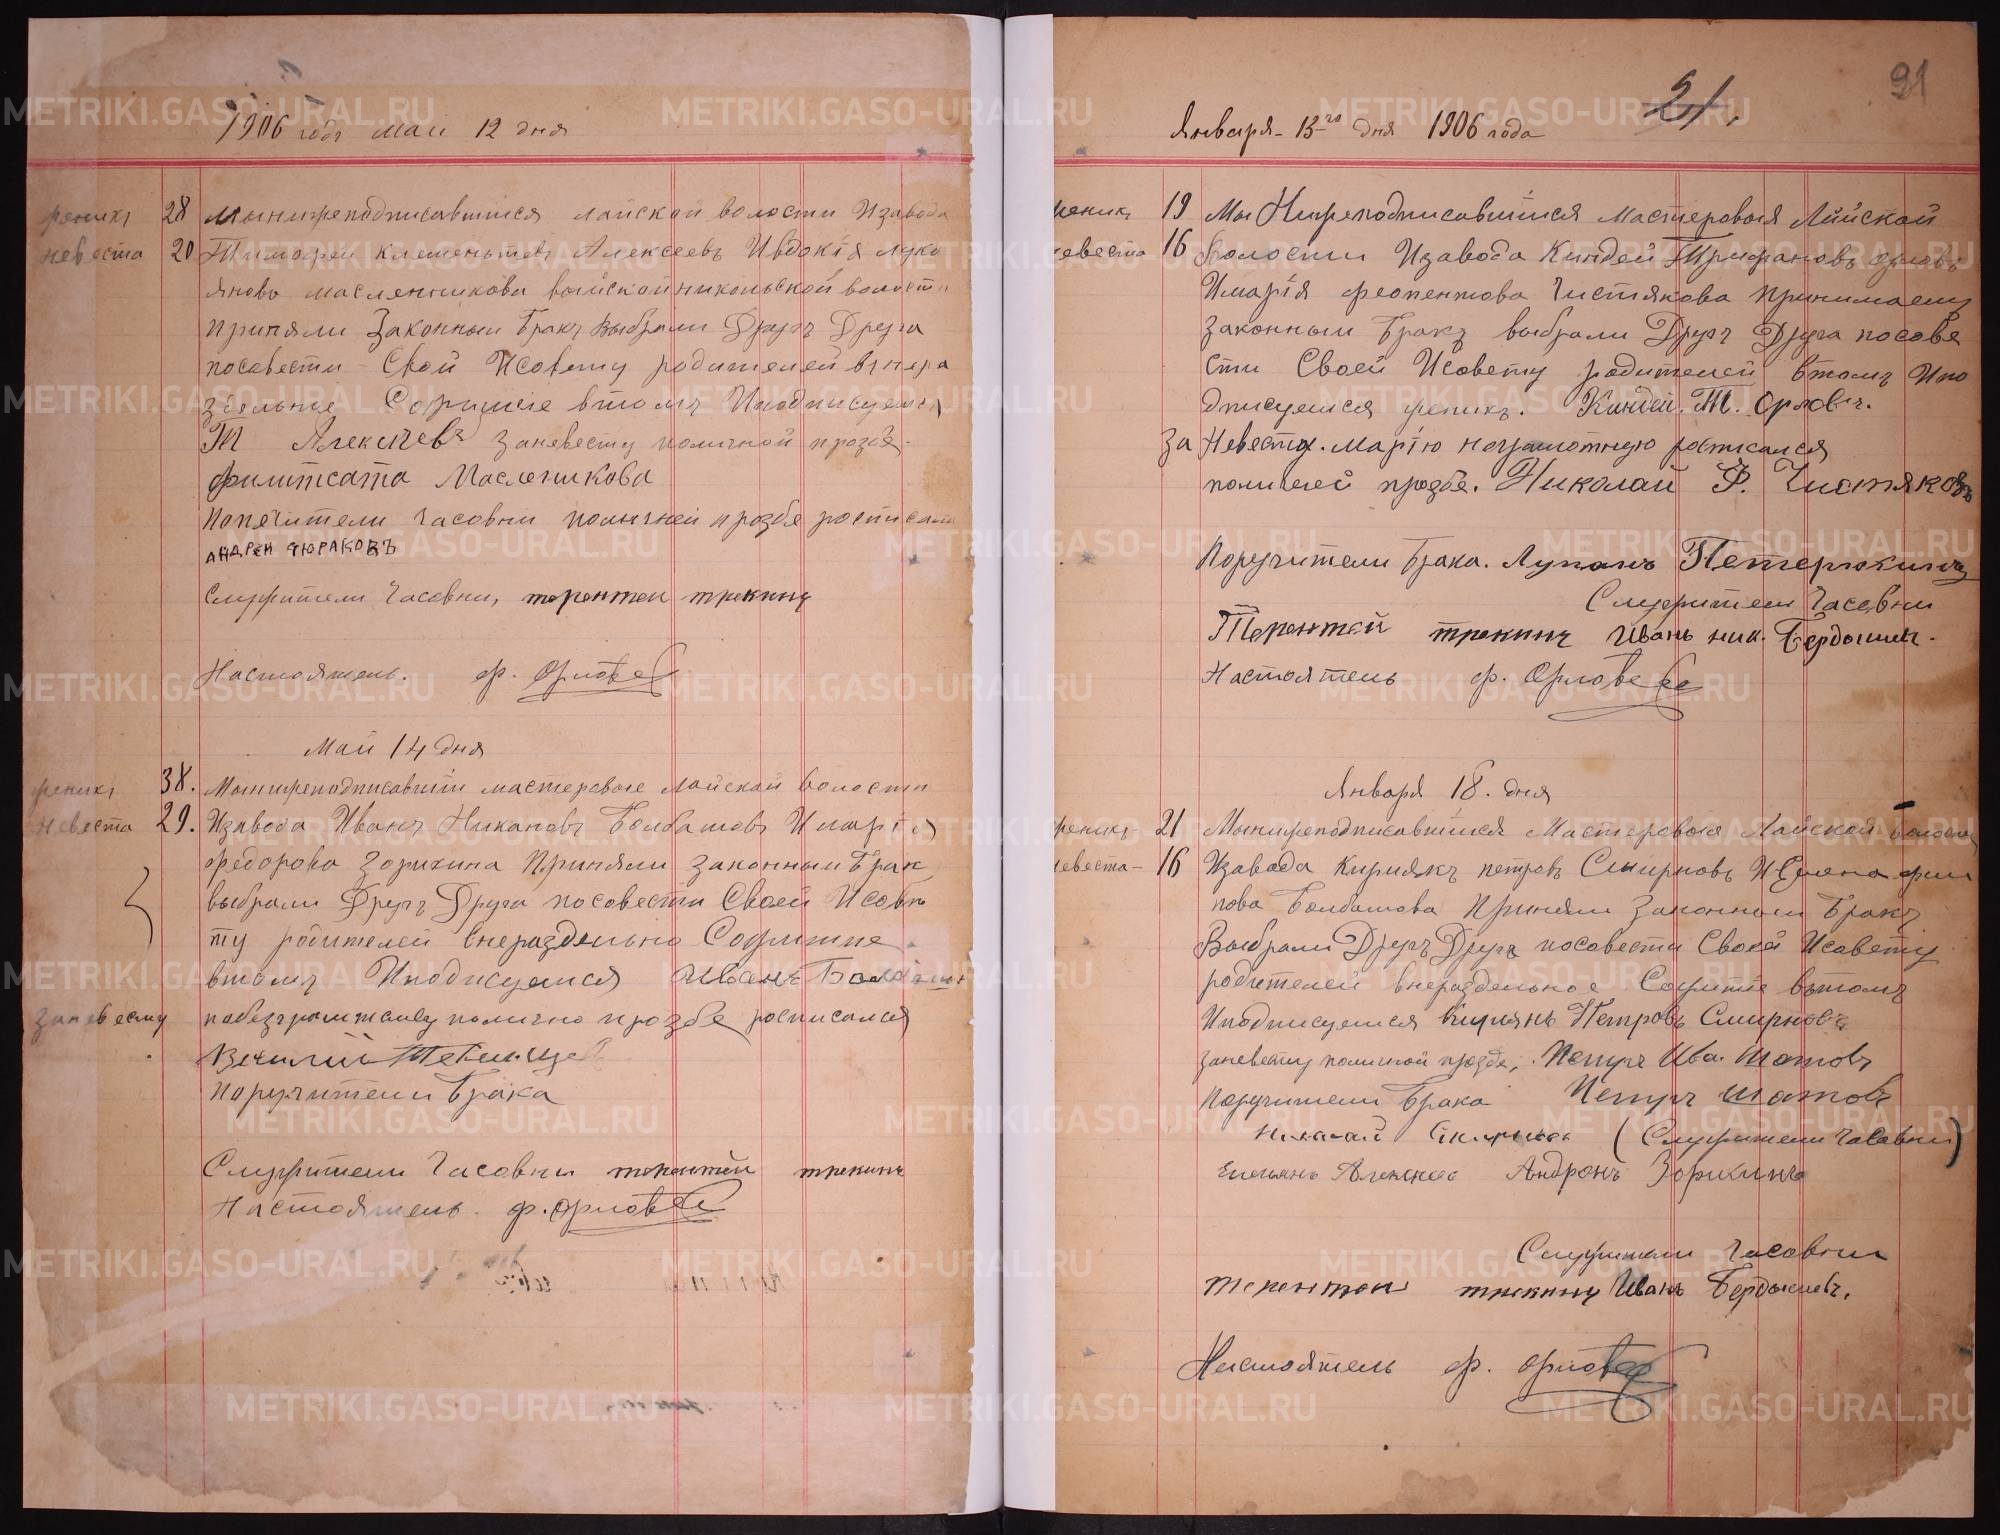 1906 годъ маи 12 дня
женихъ 28 мынижеподписавшиися лайской волости Изавода
невеста 20 Тимофеи Клементьевъ Алексеевъ Ивдокія луко
янова масленникова выйской никольской волости
приняли Законныи бракъ выбрали Другъ Друга
посовести Свой Исовету родителей
Сожитіе втомъ Иподписуемся
Т Алексеевъ заневесту поличной прозбе
филитсата Масленикова
Попечители часовни поличней прозбе росписался
АНДРЕИ ТЮРАКОВЪ
Служители часовни, терентеи трекинъ
Настоятель. ф. Орловъ
Маи 14 дня
женихъ 38. Мынижеподписавшіи мастеровые лайской волости
невеста 29. Изавода Иванъ Никановъ Болбашовъ И марія
федорова Зорихина Приняли законныи бракъ
выбрали Другъ Друга посовести Своей Исове
ту родителей внераздельно Сожитие
втомъ Иподписуемся Иванъ
заневесту полично прозбе росписался
поручители брака
Служители часовни терентеи трекинъ
Настоятель. ф. орловъ
91
21,
Января- 13-го дня 1906 года
женихъ 19 Мы Нижеподписавшіися мастеровыя Лайской
невеста 16 волости Изавода Киндей Трифановъ орловъ
Имарія феопентова Чистякова принимаемъ
Законныи бракъ выбрали Другъ Друга посове
сти Своей Исовету родителей втомъ Ипо
дписуемся женихъ. Киндей. Т. Орловъ.
За Невесту. марію неграмотную росписался
поличней прозбе. Николай Ф. Чистяковъ
Поручители брака. Лупанъ Петерюкинъ
Служители часовни
Терентей трекинъ Иванъ ник. Бердышевъ.
Настоятель ф. Орловъ
Января 18. дня
женихъ 21 Мынижеподписавшіися Мастеровыя Лайской волости
невеста- 16 Изавода Кириякъ петровъ Смирновъ И Елена фи
нова Болбашова Приняли Законныи бракъ
Выбрали Другъ Друга посовести Своей Исовету
родителей внераздельное Сожитіе втомъ
Иподписуемся Кириянъ Петровъ Смирновъ
заневесту поличной прозбе, Петръ Ива. Шатовъ
Поручители брака Петръ шатовъ
Николай (Служители часовни)
Андронъ Зорихинъ
Служители часовни
терентеи трекинъ Иванъ Бердышевъ.
Настоятель ф. орловъ
METRIKI.GASO-URAL.RU